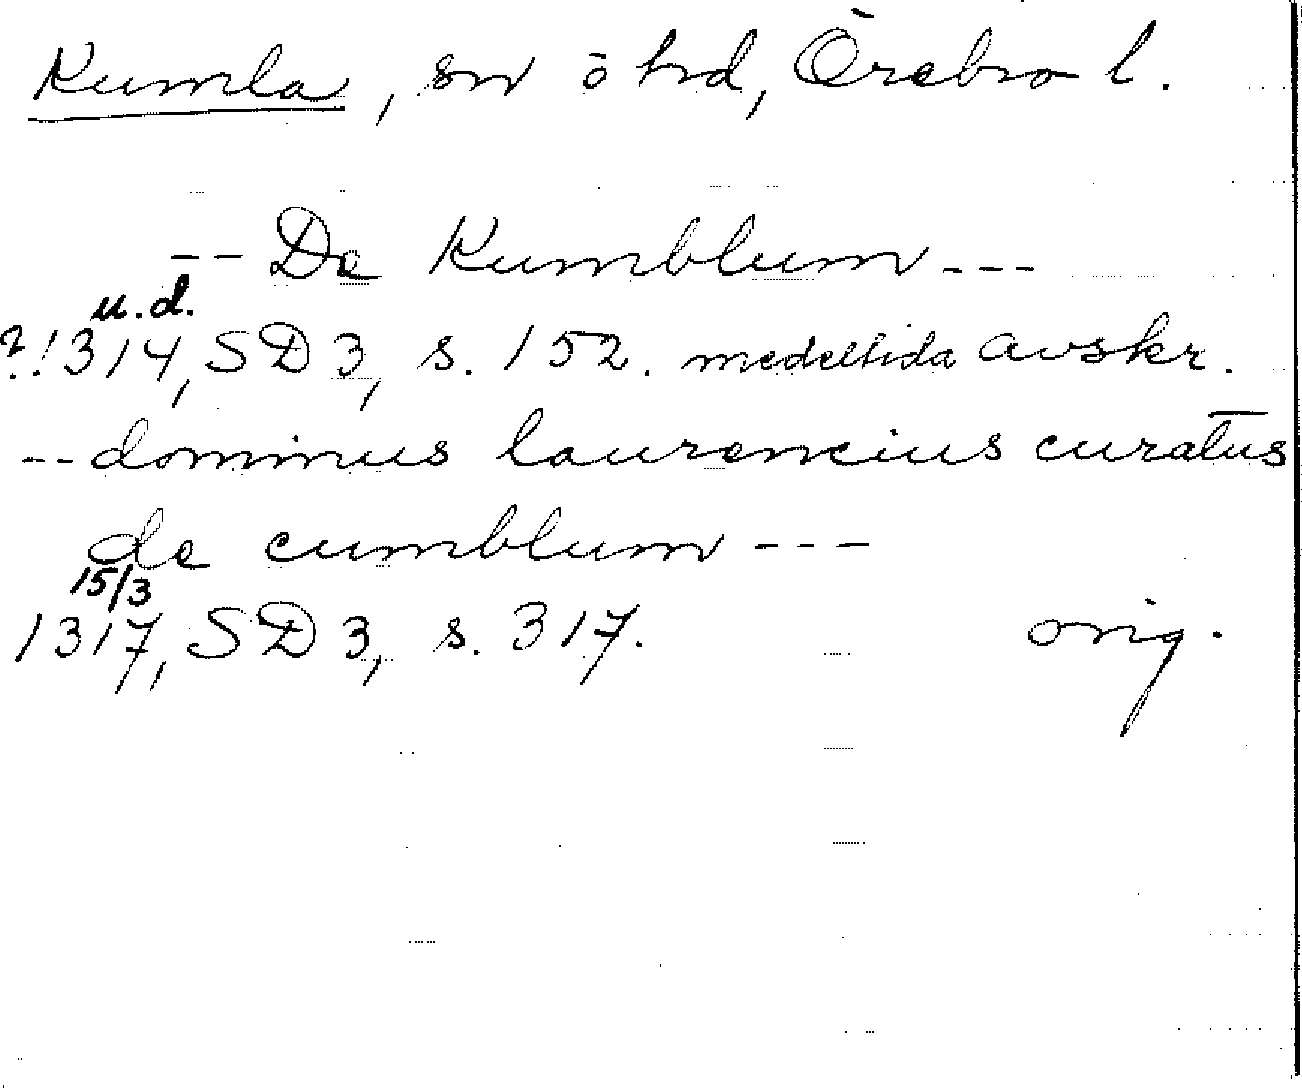 Kumla, sn o hd, Örebro l.
-- De Kumblum ---
u.d.
?1314, SD 3, s. 152. medeltida avskr.
-- dominus laurencius curatus
de cumblum ---
15/3
1317, SD 3, s. 317. orig.